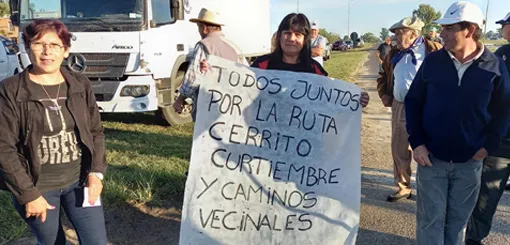 TODOS JUNTOS
POR LA RUTA
CERRITO
CURTIEMBRE
Y CAMINOS
VECINALES